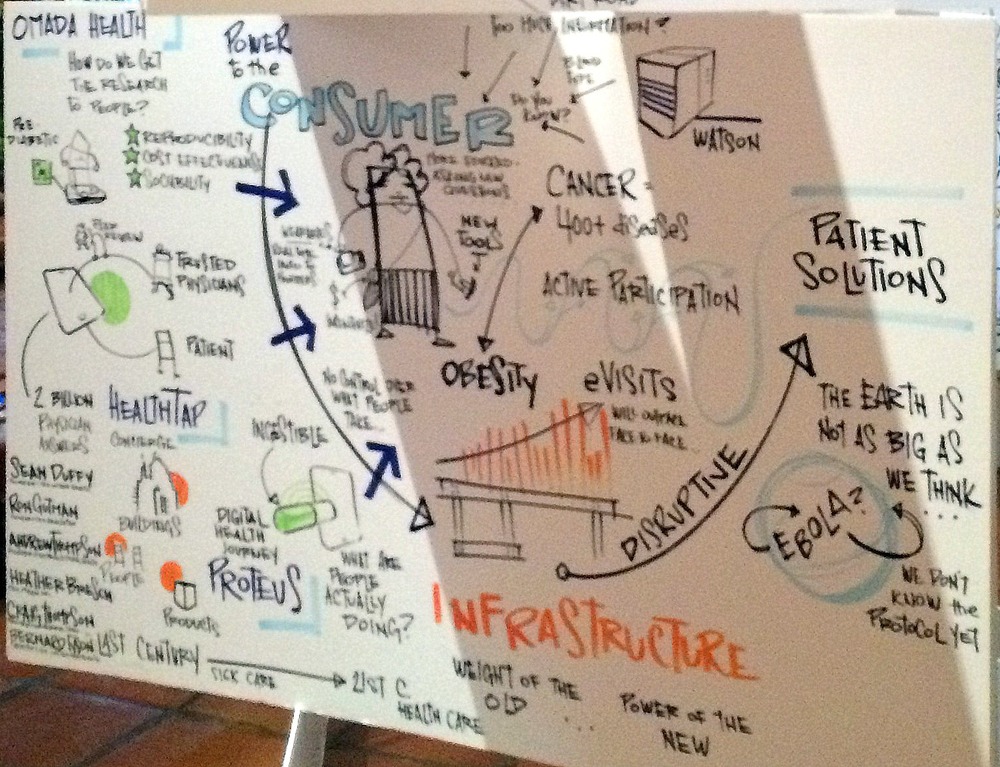 OMADA HEALTH
HOW DO WE GET
THE RESEARCH
to PEOPLE?
PRE-
DIABETIC
REPRODUCIBILITY
COST EFFECTIVENESS
SOCIABILITY
PEER
REVIEW
TRUSTED
PHYSICIANS
PATIENT
2 BILLION
PHYSICIAN
ANSWERS
HEALTHTAP
CONCIERGE
SEAN DUFFY
RON GUTMAN
ANDREW THOMPSON
HEATHER BRESCH
CRAIG THOMPSON
BERNARD TYSON
BUILDINGS
PEOPLE
PRODUCTS
INGESTIBLE
DIGITAL
HEALTH
JOURNEY
PROTEUS
WHAT ARE
PEOPLE
ACTUALLY
DOING?
LAST CENTURY
SICK CARE
21ST C
HEALTH CARE
POWER
to the
CONSUMER
NEW
TOOLS
NO CONTROL OVER
WHAT PEOPLE
TAKE...
DIRT ROAD
TOO MUCH INFORMATION?
BLOOD
TYPE
DO YOU
KNOW?
WATSON
CANCER =
400+ diseases
ACTIVE PARTICIPATION
OBESITY
eVISITS
WILL OUTPACE
FACE to FACE...
DISRUPTIVE
INFRASTRUCTURE
WEIGHT OF THE
OLD
...
POWER OF THE
NEW
PATIENT
SOLUTIONS
THE EARTH IS
NOT AS BIG AS
WE THINK
...
EBOLA?
WE DON'T
KNOW the
PROTOCOL YET